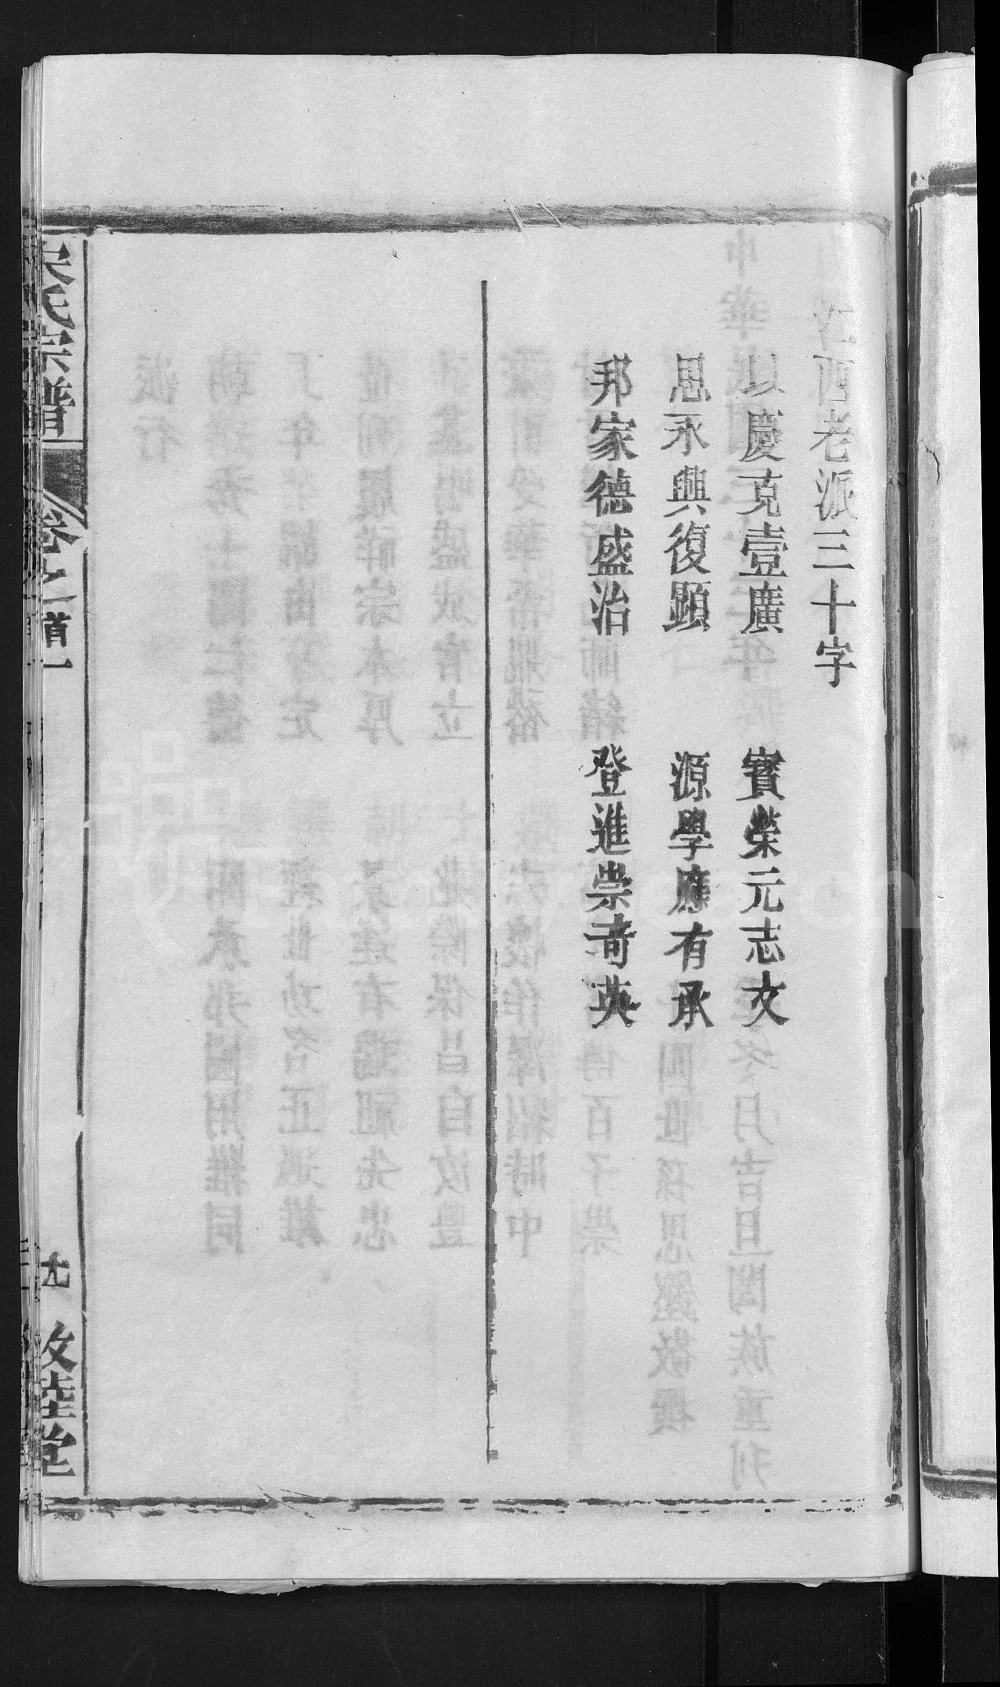 江西老派三十字
以慶克壹廣 賓榮元志文
思永興復顯 源學應有承
邦家德盛治 登進崇奇英
宋氏宗譜 卷之首一 敦陸堂